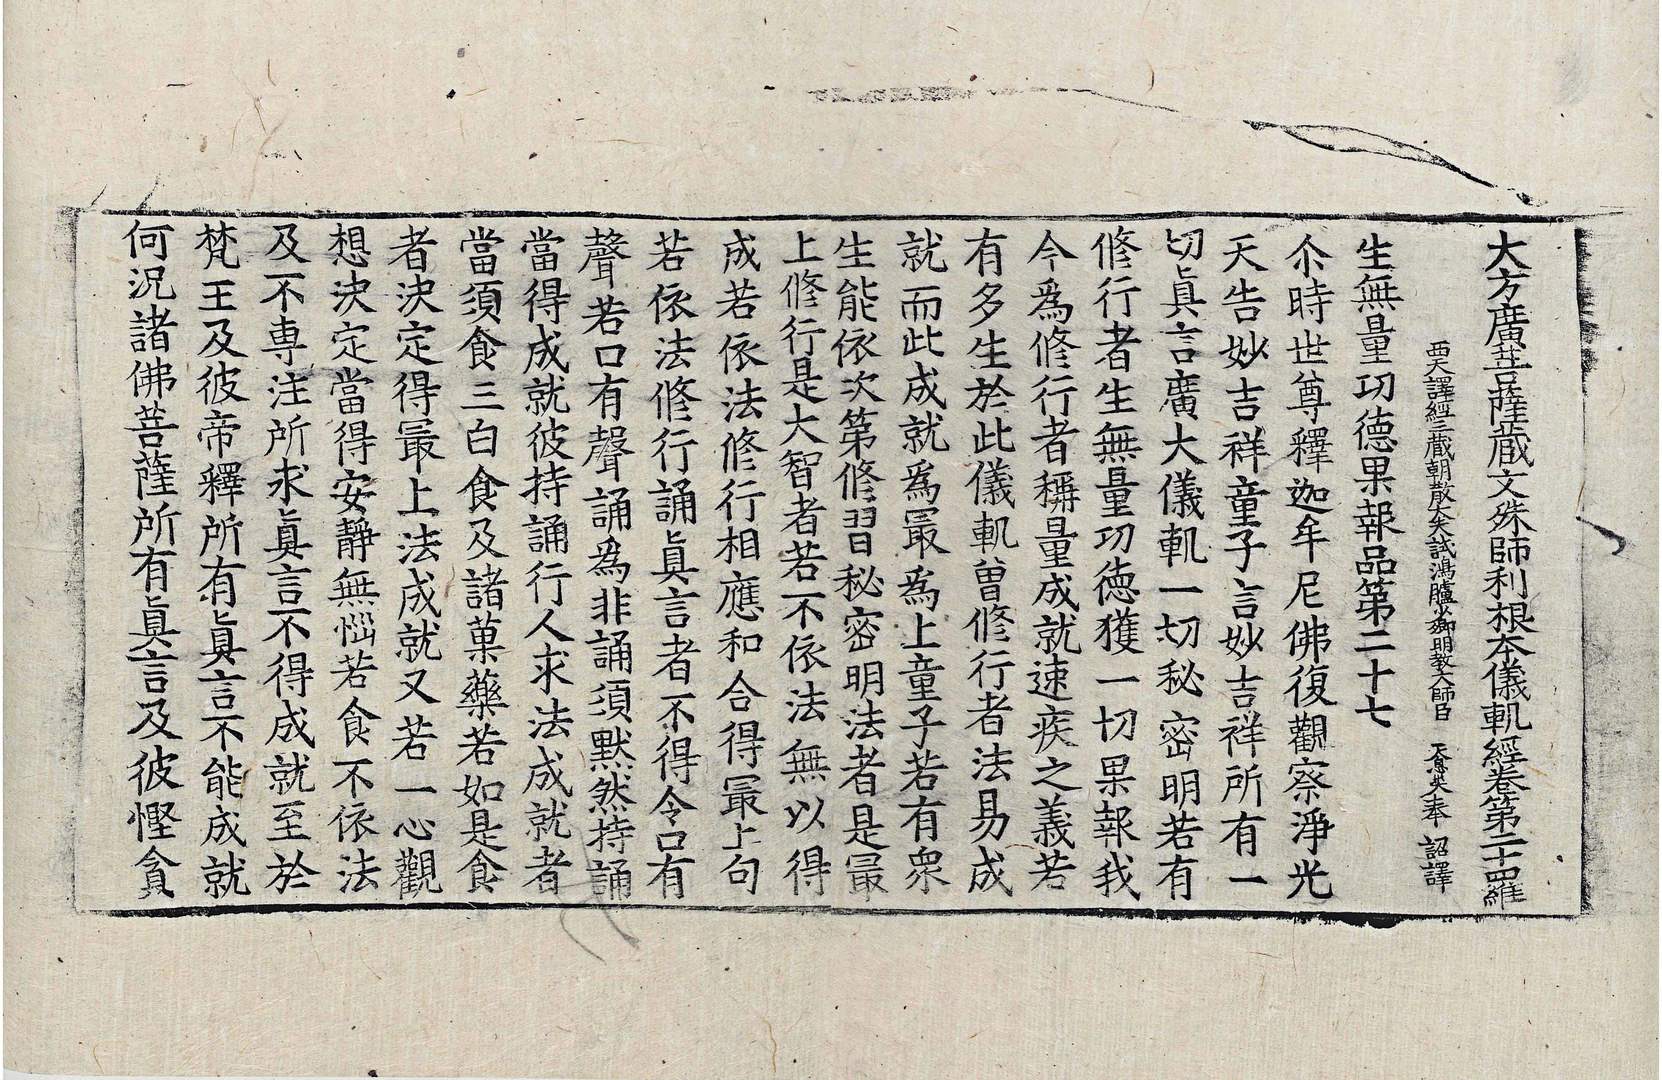 大方廣菩薩蔵文殊師利根本儀軌經卷第二十四維
西天譯經三蔵朝散大夫試鴻臚少卿明教大師臣 天息災奉 詔譯
生無量功德果報品第二十七
尒時世尊釋迦牟尼佛復觀察淨光
天告妙吉祥童子言妙吉祥所有一
切眞言廣大儀軌一切秘密明若有
修行者生無量功德獲一切果報我
今爲修行者稱量成就速疾之義若
有多生於此儀軌曾修行者法易成
就而此成就爲最爲上童子若有衆
生能依次第修習秘密明法者是最
上修行是大智者若不依法無以得
成若依法修行相應和合得最上句
若依法修行誦眞言者不得令口有
聲若口有聲誦爲非誦須默然持誦
當得成就彼持誦行人求法成就者
當須食三白食及諸菓藥若如是食
者決定得最上法成就又若一心觀
想決定當得安靜無惱若食不依法
及不専注所求眞言不得成就至於
梵王及彼帝釋所有眞言不能成就
何況諸佛菩薩所有眞言及彼慳貪